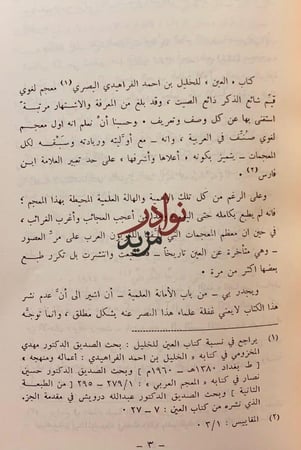 كتاب « العين » للخليل بن احمد الفراهيدي البصري (١) معجم لغوي
قيّم شائع الذكر ذائع الصيت ، وقد بلغ من المعرفة والاشتهار مرتبة
استغنى بها عن كل وصف وتعريف . وحسبنا أن نعلم انه اول معجم
صنّف في العربية ، وانه ــ مع أوّليته وريادته وسبقه لكل
المعجمات ــ يتميز بكونه « أعلاها وأشرفها ، على حد تعبير العلامة ابن
فارس (٢) .
وعلى الرغم من كل تلك العلمية والهالة العلمية المحيطة بهذا المعجم ؛
فانه لم يطبع بكامله حتى أعجب العجائب وأغرب الغرائب ،
في حين ان معظم المعجمات العرب على مرّ العصور
ــ وهي متأخرة عن العين تاريخاً ــ وانتشرت بل تكرر طبع
بعضها اكثر من مرة .
ويجدر بي ــ من باب الأمانة العلمية ــ أن اشير الى أن عدم نشر
هذا الكتاب لايعني غفلة علماء هذا العصر عنه بشكل مطلق ، وانما توجّه
نوادر
مزيد
(١) يراجع في نسبة كتاب العين للخليل : بحث الصديق الدكتور مهدي
المخزومي في كتابه « الخليل بن احمد الفراهيدي : أعماله ومنهجه »
[ ط بغداد ١٣٨٠هـ ــ ١٩٦٠م ] وبحث الصديق الدكتور حسين
نصار في كتابه « المعجم العربي » : ٢٧٩/١ ــ ٢٩٥ [ من الطبعة
الثانية ] وبحث الصديق الدكتور عبدالله درويش في مقدمة الجزء
الذي نشره من كتاب العين : ٧ ــ ٢٧ .
(٢) المقاييس : ٣/١ .
ــ ٣ ــ